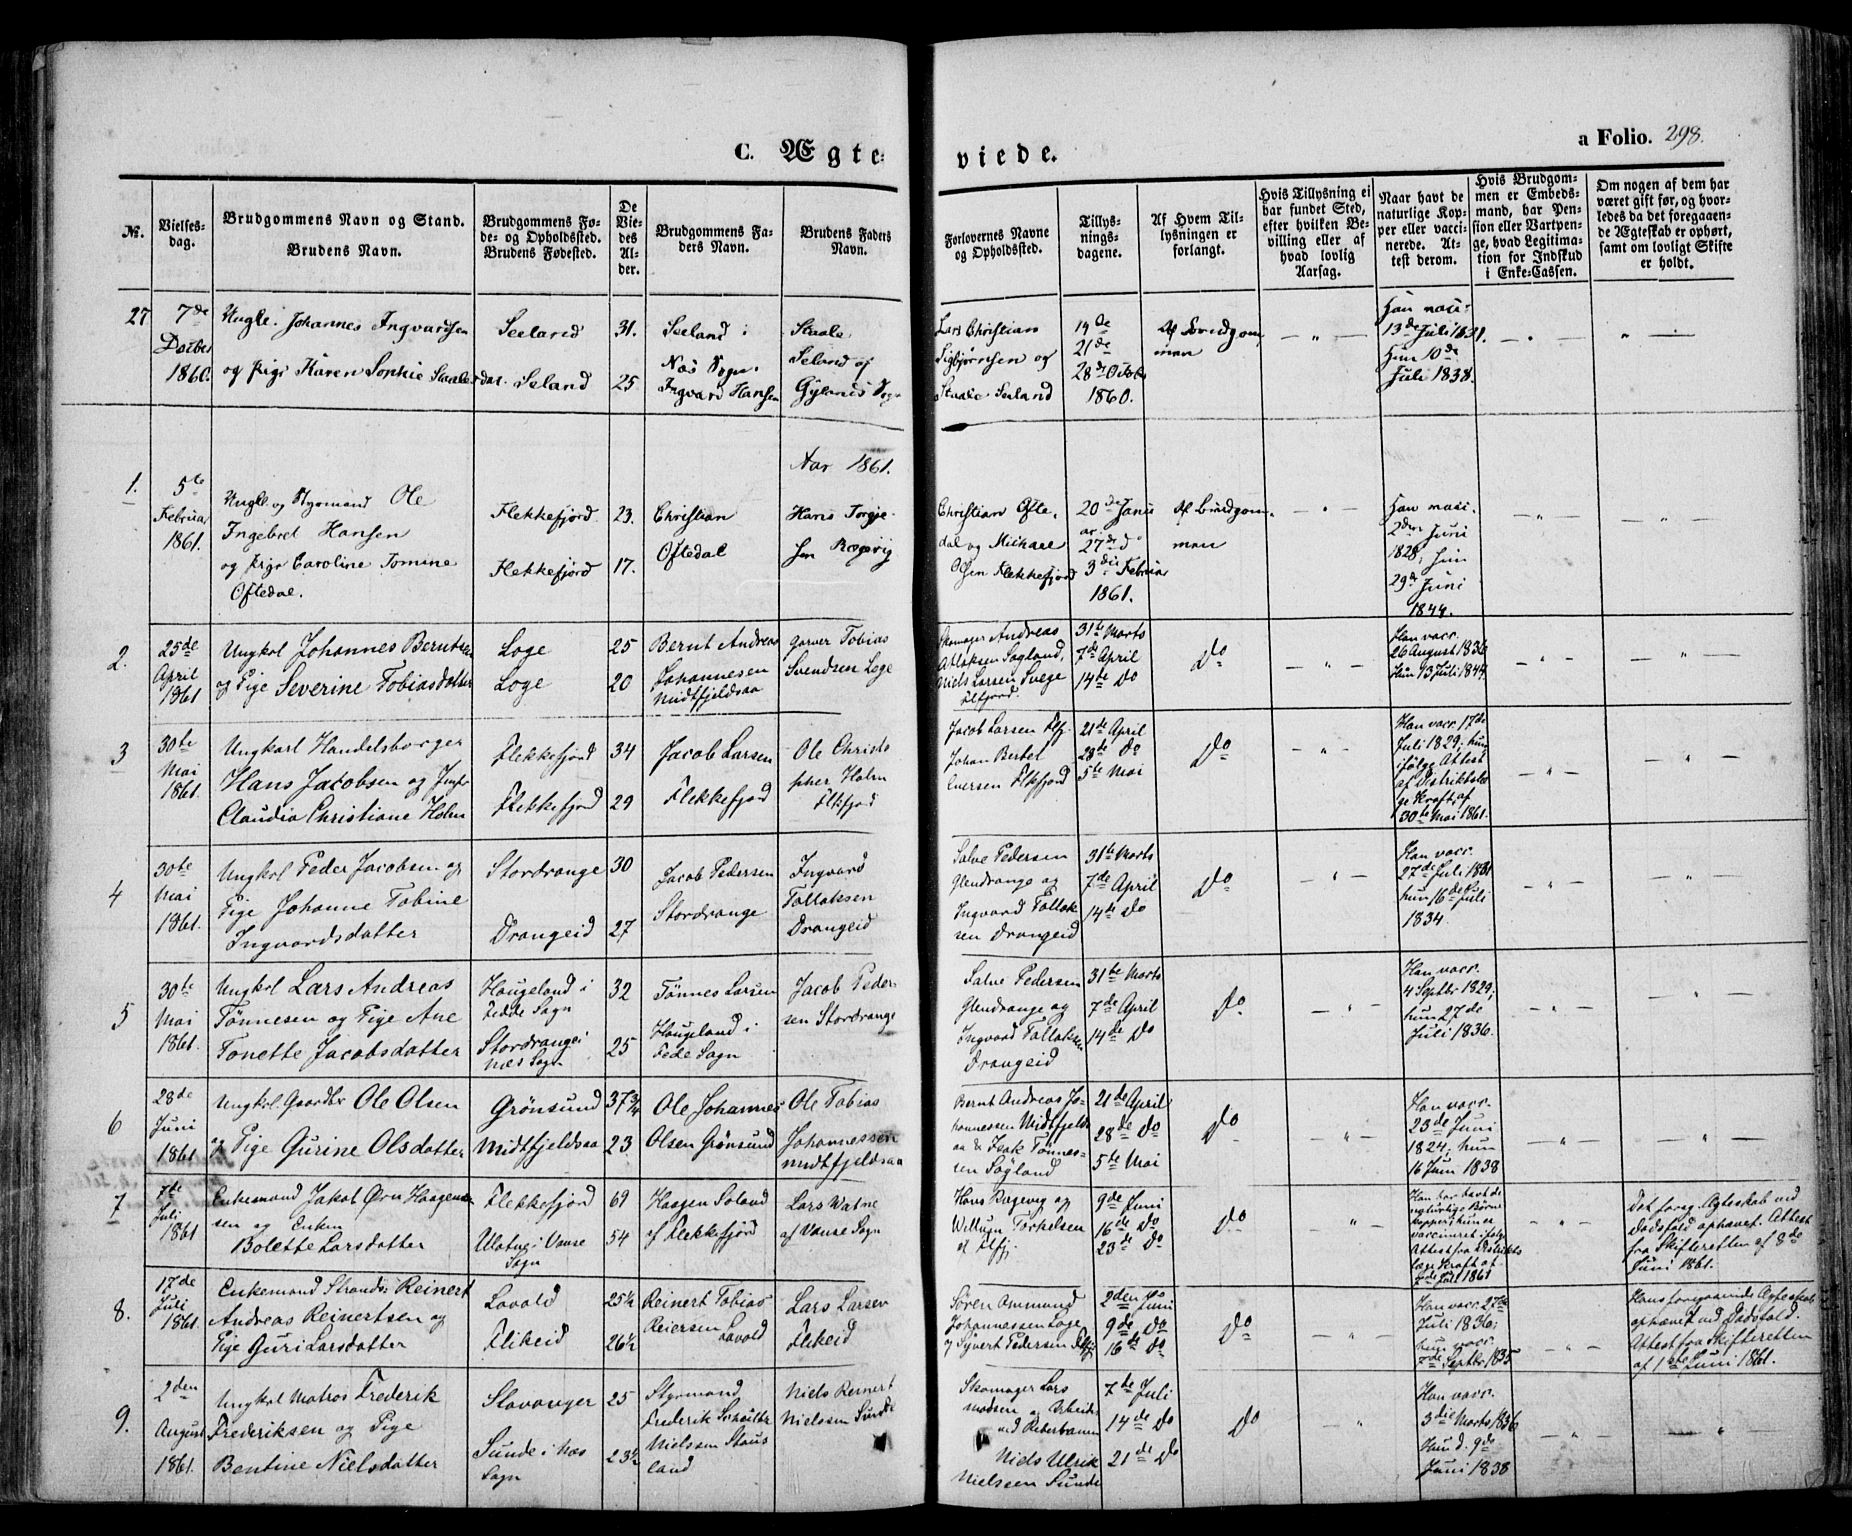 C. Ægte-
viede.
a Folio. 298.
№.
Vielses-
dag.
Brudgommens Navn og Stand.
Brudens Navn.
Brudgommens Fø-
de- og Opholdssted.
Brudens Fødested.
De
Vie-
des
Al-
der.
Brudgommens Fa-
ders Navn.
Brudens Faders
Navn.
Forlovernes Navne
og Opholdssted.
Tillys-
nings-
dagene.
Af Hvem Til-
lysningen er
forlangt.
Hvis Tillysning ei
har fundet Sted,
efter hvilken Be-
villing eller af
hvad lovlig
Aarsag.
Naar havt de
naturlige Kop-
per eller vacci-
nerede. At-
test derom.
Hvis Brudgom-
men er Embeds-
mand, har Pen-
sion eller Vartpen-
ge, hvad Legitima-
tion for Indskud
i Enke-Cassen.
Om nogen af dem har
været gift før, og hvor-
ledes da det foregaaen-
de Ægteskab er ophørt,
samt om lovligt Skifte
er holdt.
27
7de
Octbr
1860.
Ungk. Johannes Ingvardsen
og Pige Karen Sophie Staalesdat.
Seeland
Seland
31.
25
Seeland i
Næs Sogn.
Ingvard Hansen
Staale
Seland af
Gylands Sogn
Lars Christian
Sigbjørnsen og
Staale Seeland
14de
21de
28de Octob
1860.
Af Brudgom-
men
Han
13de Juli 1831.
Hun 10de
Juli 1838.
Aar 1861.
1.
5te
Februar
1861.
Ungk. og Styrmand Ole
Ingebret Hansen
og Pige Caroline Tomine
Oftedal.
Flekkefjord
Flekkefjord
23.
17.
Christian
Oftedal
Hans Torgje-
sen Regevig
Christian Ofte-
dal og Michael
Olsen Flekkefjord
20de Janu
ar
27de do
3die Februar
1861.
Af Brudgom-
men
Han
2den Juni
1828, Hun
29de Juni
1844.
2.
25de
April
1861
Ungkrl Johannes Berntsen
og Pige Severine Tobiasdatter
Loge
Loge
25
20
Bernt Andreas
Johannesen
Midtfjeldsaa
Garver Tobias
Svendsen Loge
Skomager Andreas
Atlaksen Søgland,
Niels Larsen Svege
Flfjord.
31te Marts
7de April
14de Do
Do
Han vacc.
26 August 1836
Hun 13 Juli 1844
3
30te
Mai
1861.
Ungkarl Handelsborger
Hans Jacobsen og Jmfr
Claudia Christiane Holm
Flekkefjord
Flekkefjord
34
29
Jacob Larsen
Flekkefjord
Ole Christo
pher Holm
Flkfjord
Jacob Larsen Flfj.
Johan Bertel
Eversen Flkfjord
21de April
28de Do
5te Mai
Do
Han vacc. 17de
Juli 1829; hun
ifølge Attest
af Distriktslæ
ge Kraft, af
30te Mai 1861.
4
30te
Mai
1861.
Ungkrl Peder Jacobsen og
Pige Johanne Tobine
Ingvardsdatter
Stordrange
Drangeid
30
27
Jacob Pedersen
Stordrange
Ingvard
Tollaksen
Drangeid
Salve Pedersen
Glendrange og
Ingvard Tollak
sen Drangeid
31te Marts
7de April
14de Do
Do
Han vacc.
27de Juli 1831
hun 16de Juli
1834
5
30te
Mai
1861.
Ungkrl Lars Andreas
Tønnesen og Pige Ane
Tonette Jacobsdatter
Haugeland i
Fedde Sogn
Stordrange i
Næs Sogn
32
25
Tønnes Larsen
Haugeland i
Fede Sogn
Jacob Peder
sen Stordrange
Salve Pedersen
Glendrange og
Ingvard Tollaksen
Drangeid
31te Marts
7de April
14de Do
Do
Han vacc.
4 Septbr 1829;
hun 27de
Juli 1836.
6
28de
Juni
1861
Ungkrl. Gaardbr Ole Olsen
og Pige Gurine Olsdatter
Grønsund
Midtfjeldsaa
37 3/4
23
Ole Johannes
Olsen Grønsund
Ole Tobias
Johannessen
Midtfjeldsaa
Bernt Andreas Jo-
hannessen Midtfjelds
aa & Isak Tønnes-
sen Søgland
21de April
28de Do
5te Mai
Do
Han vacc.
23de Juni
1824; hun
16 Juni 1838
7
7de
Juli
1861
Enkemand Jakob Ørn Haagen
sen og Enken
Bolette Larsdatter
Flekkefjord
Ulatne i Vanse
Sogn
69
54
Haagen Soland
af Flekkefjord
Lars Watne
af Vanse Sogn
Hans Regevig og
Willum Torkelsen
af Flfj.
9de Juni
16de Do
23de Do
Do
Han har havt de
naturlige Børne
kopper; hun er
vaccineret ifølge
Attest fra Distrikts
læge Kraft af
7de Juli 1861
Det foreg. Ægteskab ved
Dødsfald ophævet. Attest
fra Skifteretten af 8de
Juni 1861.
8.
17de
Juli
1861.
Enkemand Strands. Reinert
Andreas Reinertsen og
Pige Guri Larsdatter
Lavold
Flikeid
25 1/2
26 1/2
Reinert Tobias
Reiersen Lavold
Lars Larsen
Flikeid
Søren Ommund
Johannessen Loge
og Syvert Pedersen Flkfj
2den Juni
9de Do
16de Do
Do
Han vacc. 27de
Juli 1836;
hun vacc.
7de Septbr 1835
Hans foregaaende Ægteskab
ophævet ved Dødsfald.
Attest fra Skifteretten
af 1ste Juni 1861.
9.
2den
August
1861
Ungkrl Matros Frederik
Frederiksen og Pige
Bentine Nielsdatter
Stavanger
Sunde i Næs
Sogn
25
23 1/2
Styrmand
Frederik
Nielssen Staus
land
Niels Reinert
Nielssen Sunde
Skomager Lars
Madsen og Arbeids
ved Reberbanen
Niels Ulrik
Nielssen Sunde
7de Juli
14de Do
21de Do
Do
Han vacc.
3die Marts 1836
Hun d. 9de
Juni 1838